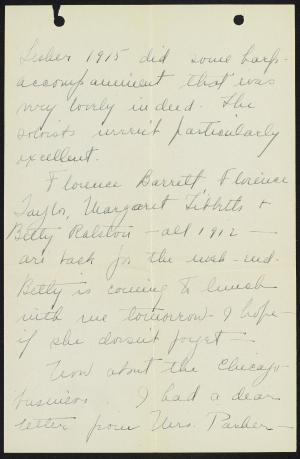 Lesher 1915 did some harp-
accompaniment that was
very lovely indeed. The
soloists weren't particularly
excellent.
Florence Barrett, Florence
Taylor, Margaret Tibbetts +
Betty Ralston - all 1912 -
are back for the week-end.
Betty is coming to lunch
with me tomorrow - I hope -
if she doesn't forget -
Now about the Chicago
business. I had a dear
letter from Mrs. Parker -